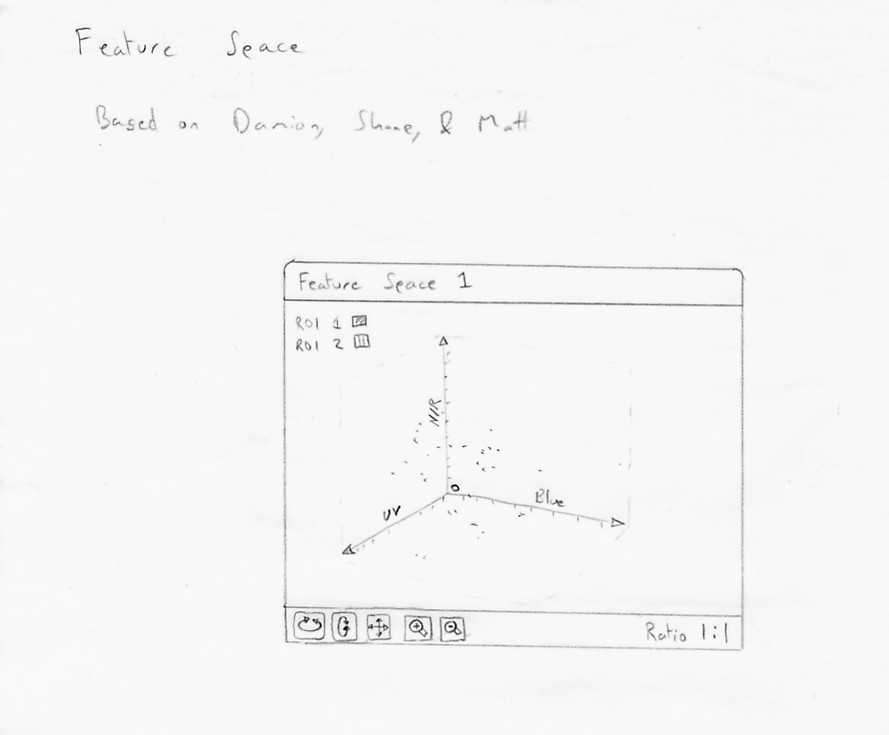 Feature Space
Based on Damion, Shane, & Matt
Feature Space 1
ROI 1
ROI 2
NIR
0
Blue
UV
Ratio 1:1